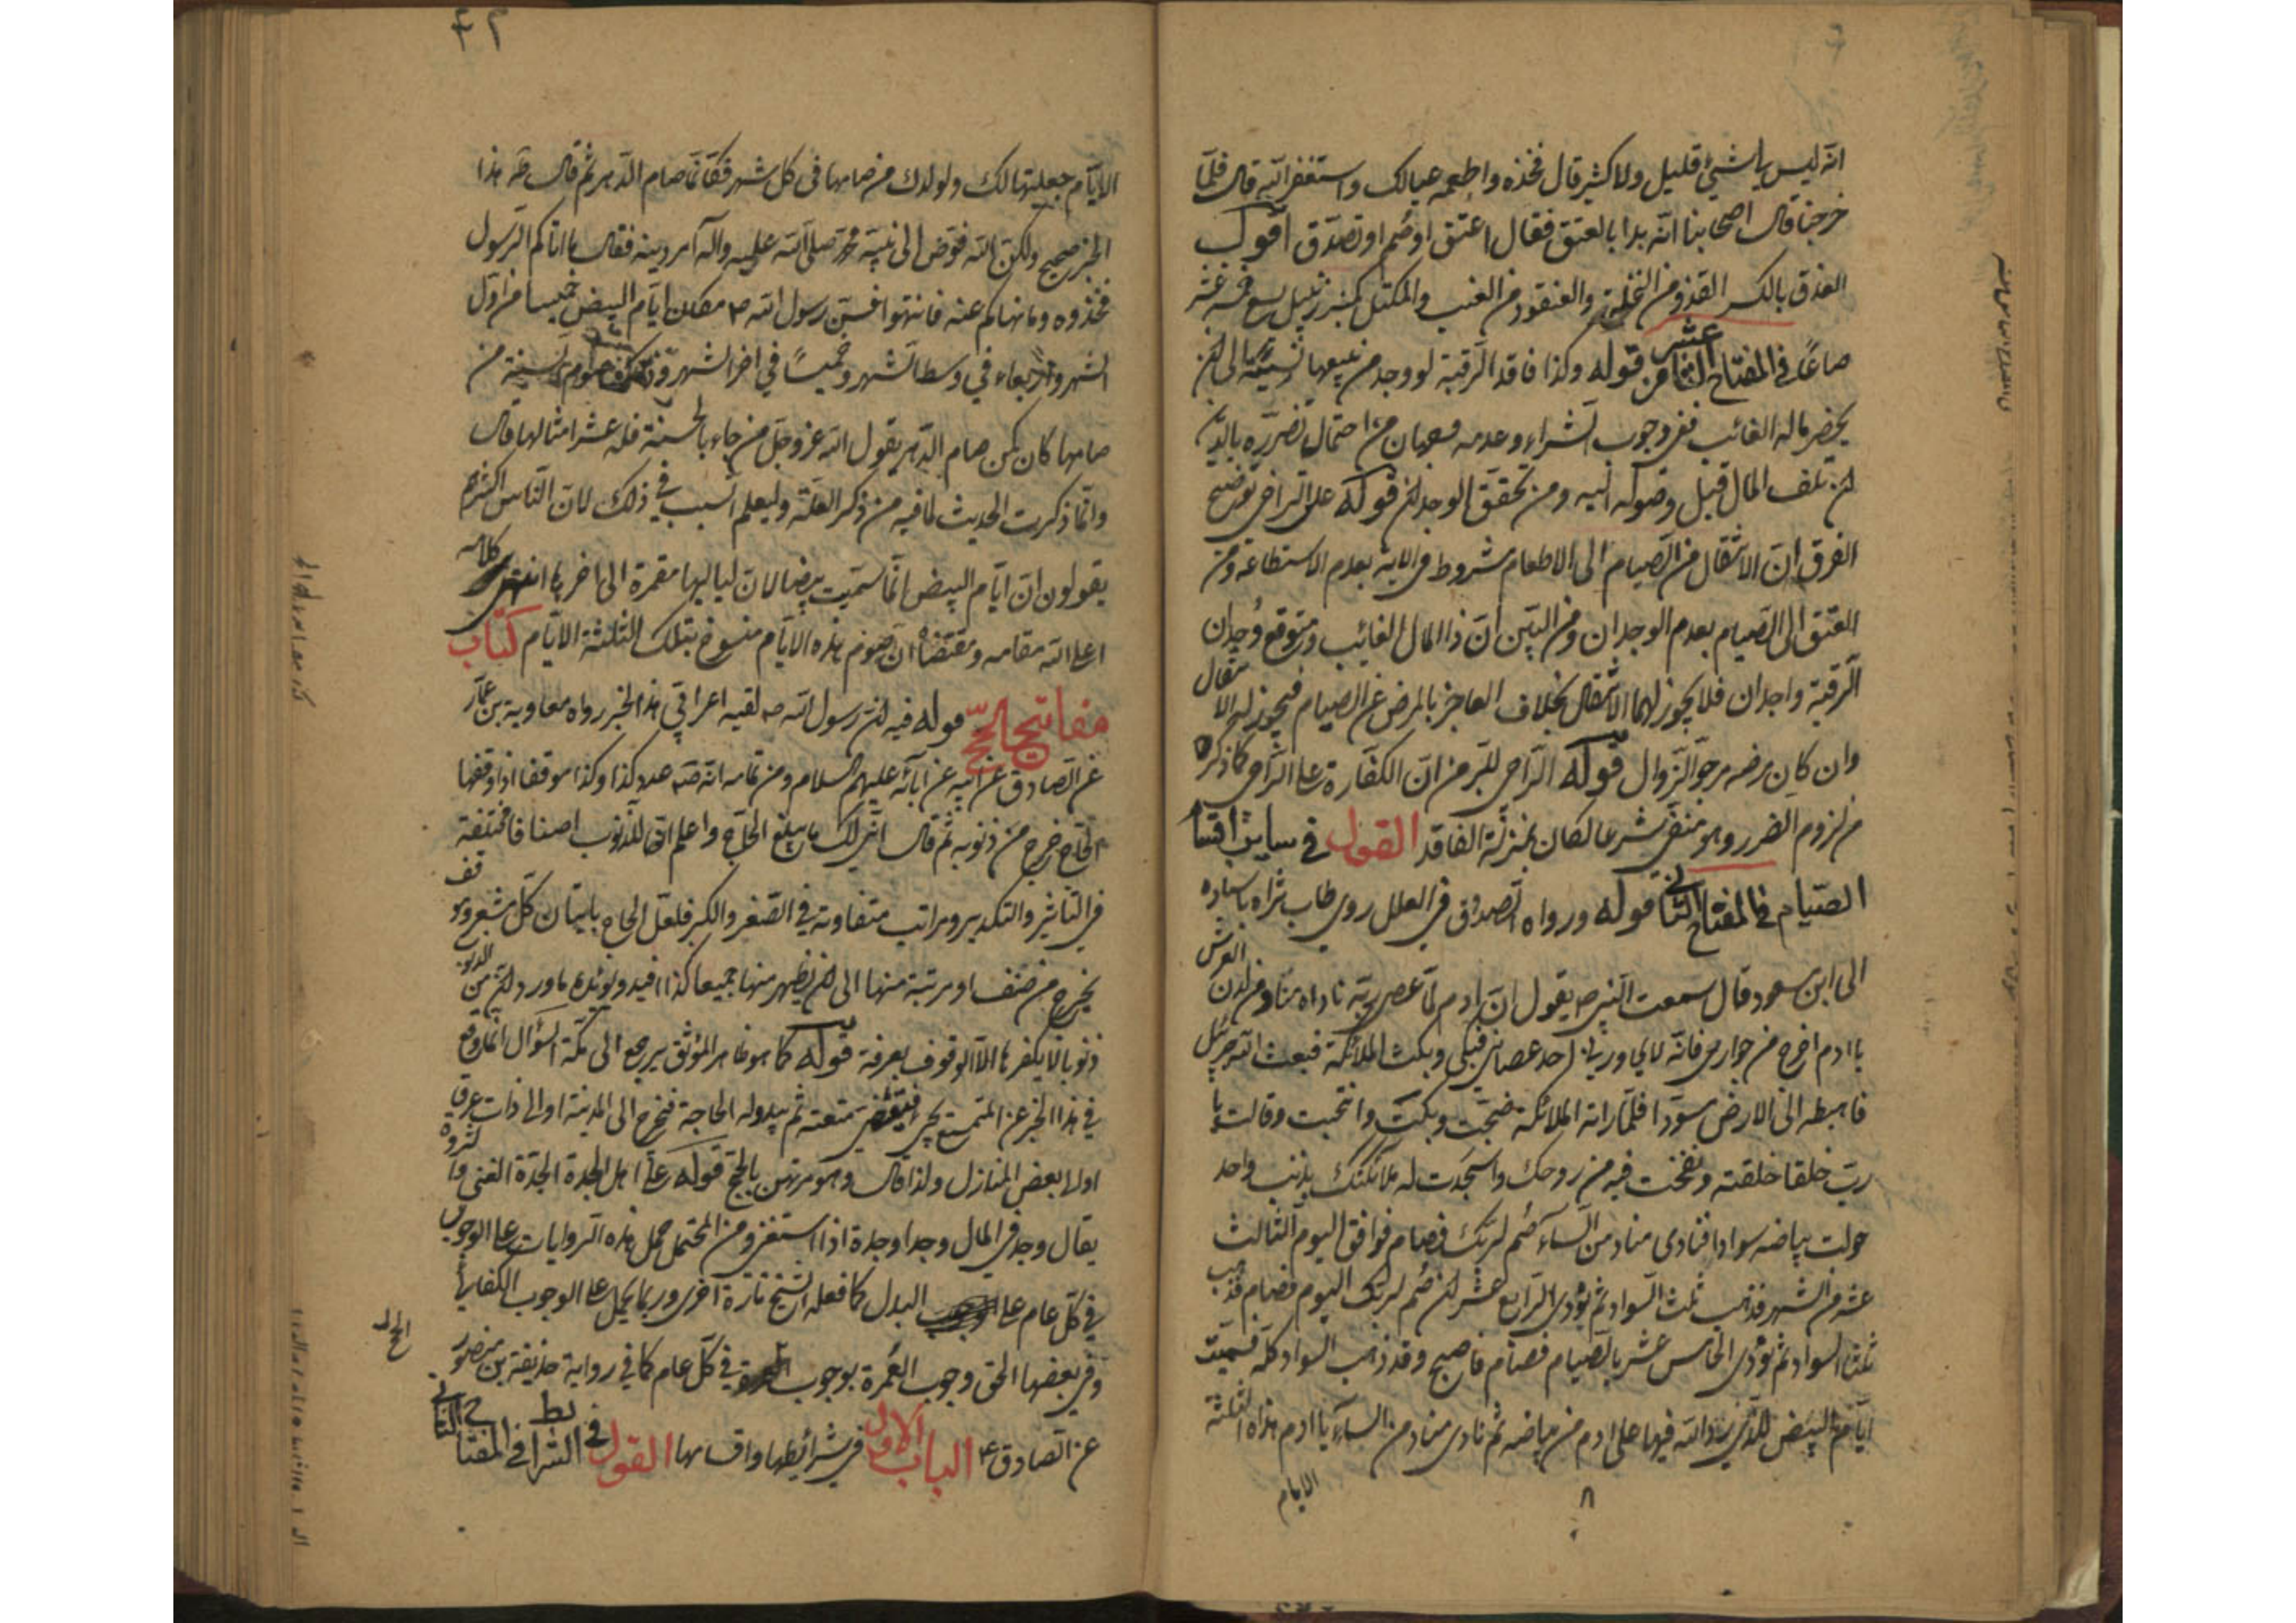 انه ليس يا شيئ قليل ولا كثير قال فخذه واطعمه عيالك واستغفر الله قال فلمّا
خرجنا قال اصحابنا انه بدا بالعتق فقال اعتق او صم او تصدّق اقول
العذق بالكسر القنو من النخلة والعنقود من العنب والمكتل كمنبر زنبيل يسع خمسة عشر
صاعًا في المفتاح الثامن عشر قوله وكذا فاقد الرقبة لو وجد من يبيعها نسيئة الى ان
يحضر ماله الغائب ففي وجوب الشراء وعدمه وجهان من احتمال تضرره بالدين
لان تلف المال قبل وصوله اليه ومن تحقق الوجدان قوله على التراخي توضيح
الفرق ان الانتقال من الصيام الى الاطعام مشروط في الاية بعدم الاستطاعة ومن
العتق الى الصيام بعدم الوجدان ومن البين ان ذا المال الغائب ومتوقع وجدان
الرقبة واجدان فلا يجوز لهما الانتقال بخلاف العاجز بالمرض عن الصيام فيجوز له الانتقال
وان كان مرضه مرجو الزوال قوله الراجي للبرء من ان الكفارة على التراخي كما ذكره
من لزوم الضرر وهو منفي شرعا لكان بمنزلة الفاقد القول في ساير اقسام
الصيام في المفتاح الثاني قوله ورواه الصدوق في العلل روى طاب ثراه باسناده
الى ابن مسعود قال سمعت النبي ص يقول ان ادم لمّا عصى ربه ناداه مناد من لدن العرش
يا ادم اخرج من جواري فانه لا يجاورني احد عصاني فبكى وبكت الملائكة فبعث الله جبرئيل
فاهبطه الى الارض مسودا فلمّا راته الملائكة ضجت وبكت وانتحبت وقالت يا
رب خلقا خلقته ونفخت فيه من روحك واسجدت له ملائكتك بذنب واحد
حولت بياضه سوادا فنادى مناد من السماء صم لربك فصام فوافق اليوم الثالث
عشر من الشهر فذهب ثلث السواد ثم نودي الرابع عشر ان صم لربك اليوم فصام فذهب
ثلثا السواد ثم نودي الخامس عشر بالصيام فصام فاصبح وقد ذهب السواد كله فسميت
ايام البيض للذي رد الله فيها على ادم من بياضه ثم نادى مناد من السماء يا ادم هذه الثلثة
الايام
٨
الايام جعلتها لك ولولدك من صامها في كل شهر فكانما صام الدهر ثم قال ره هذا
الخبر صحيح ولكن الله فوّض الى نبيه محمد صلى الله عليه وآله امر دينه فقال ما اتاكم الرسول
فخذوه وما نهاكم عنه فانتهوا فسن رسول الله ص مكان ايام البيض خميسا من اول
الشهر واربعاء في وسط الشهر وخميسًا في اخر الشهر وذلك صوم السنة من
صامها كان كمن صام الدهر يقول الله عز وجل من جاء بالحسنة فله عشر امثالها قال
وانما ذكرت الحديث لما فيه من ذكر العلة وليعلم السبب في ذلك لان الناس اكثرهم
يقولون ان ايام البيض انما سميت بيضا لان لياليها مقمرة الى اخرها انتهى كلامه
اعلى الله مقامه ومقتضاه ان صوم هذه الايام منسوخ بتلك الثلثة الايام كتاب
مفاتيح الحج قوله فيه ان رسول الله ص لقيه اعرابي هذا الخبر رواه معاوية بن عمار
عن الصادق عن ابيه عن آبائه عليهم السلام ومن تمامه انه ص عدد كذا وكذا موقفا اذا وقفها
الحاج خرج من ذنوبه ثم قال انى لك ما يبلغ الحاج واعلم ان للذنوب اصنافا مختلفة
في التاثير والتكدير ومراتب متفاوتة في الصغر والكبر فلعل الحاج باتيان كل مشعر وموقف
يخرج من صنف او مرتبة منها الى ان يطهر منها جميعا كذا افيد ويؤيده ما ورد ان من الذنوب
ذنوبا لا يكفرها الا الوقوف بعرفة قوله كما هو ظاهر الموثق يرجع الى مكة السؤال انما وقع
في هذا الخبر عن المتمتع يجيء فيقضي متعته ثم يبدو له الحاجة فيخرج الى المدينة او الى ذات عرق
او الى بعض المنازل ولذا قال وهو مرتهن بالحج قوله على اهل الجدة الجدة الغنى والثروة
يقال وجد في المال وجدا وجدة اذا استغنى ومن المحتمل حمل هذه الروايات على الوجوب
في كل عام على البدل كما فعله الشيخ تارة اخرى وربما يحمل على الوجوب الكفائي
وفي بعضها الحق وجوب العمرة بوجوب الحج في كل عام كما في رواية حذيفة بن منصور
عن الصادق ع الباب الاول في شرائطها واقسامها القول في الشرائط في المفتاح الثاني